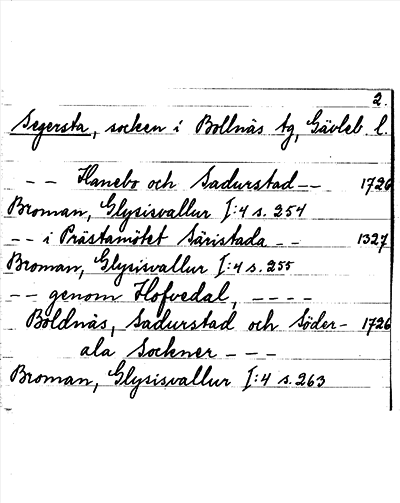 2.
Segersta, socken i Bollnäs tg, Gävleb. l.
-- Hanebo och Sadurstad -- 1726
Broman, Glysisvallur I:4 s. 254
-- i Prästamötet Säristada -- 1327
Broman, Glysisvallur I:4 s. 255
-- genom Hofvedal, ----
Boldnäs, Sadurstad och Söder- 1726
ala Sockner ---
Broman, Glysisvallur I:4 s. 263